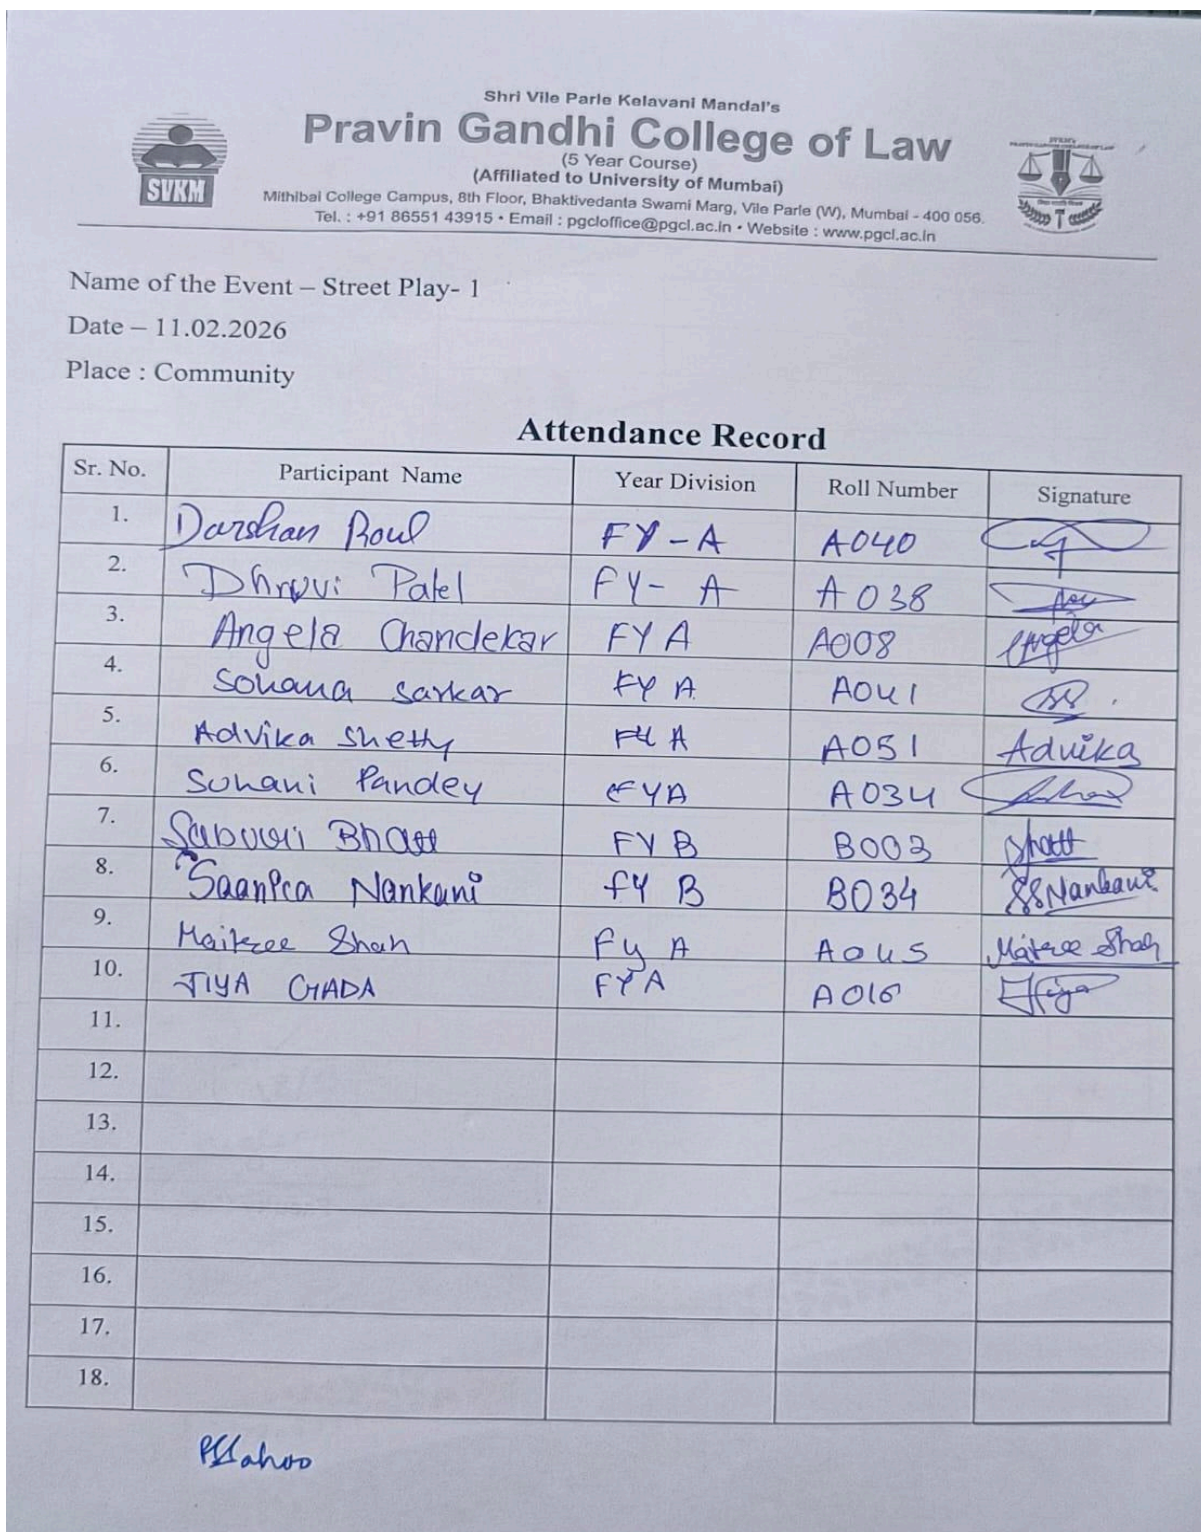 Shri Vile Parle Kelavani Mandal's
Pravin Gandhi College of Law
(5 Year Course)
(Affiliated to University of Mumbai)
Mithibai College Campus, 8th Floor, Bhaktivedanta Swami Marg, Vile Parle (W), Mumbai - 400 056.
Tel. : +91 86551 43915 • Email : pgcloffice@pgcl.ac.in • Website : www.pgcl.ac.in
SVKM
Name of the Event – Street Play- 1
Date – 11.02.2026
Place : Community
Attendance Record
Sr. No. Participant Name Year Division Roll Number Signature
1. Darshan Roul FY-A A040
2. Dhruvi Patel FY- A A038
3. Angela Chandekar FY A A008 Angela
4. Sohana Sarkar FY A A041
5. Advika Shetty FY A A051 Advika
6. Suhani Pandey FYA A034
7. Saburi Bhatt FY B B003 Bhatt
8. Saanica Nankani FY B B034 SSNankani
9. Maitree Shah Fy A A045 Maitree Shah
10. JIYA GADA FYA A016 Jiya
11.
12.
13.
14.
15.
16.
17.
18.
PSSahoo